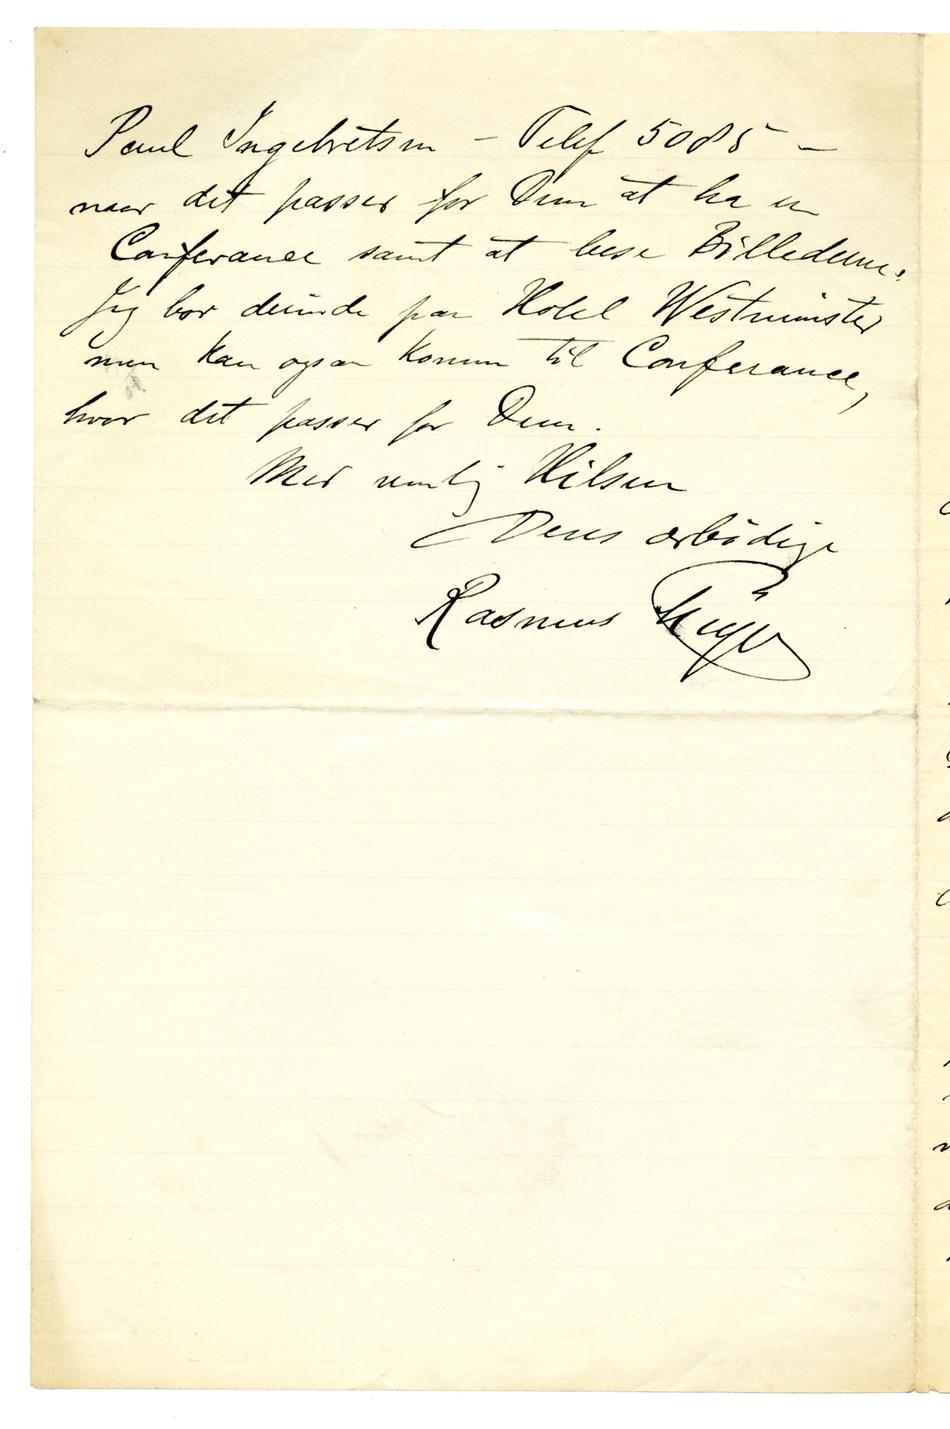 Paul Ingebretsen – Telef 5085 –
naar det passer for Dem at ha en
Conferance samt at bese Billederne.
Jeg bor derinde paa Hotel Westminster
men kan ogsaa komme til Conferance,
hvor det passer for Dem.
Med venlig Hilsen
Deres ærbødige
Rasmus